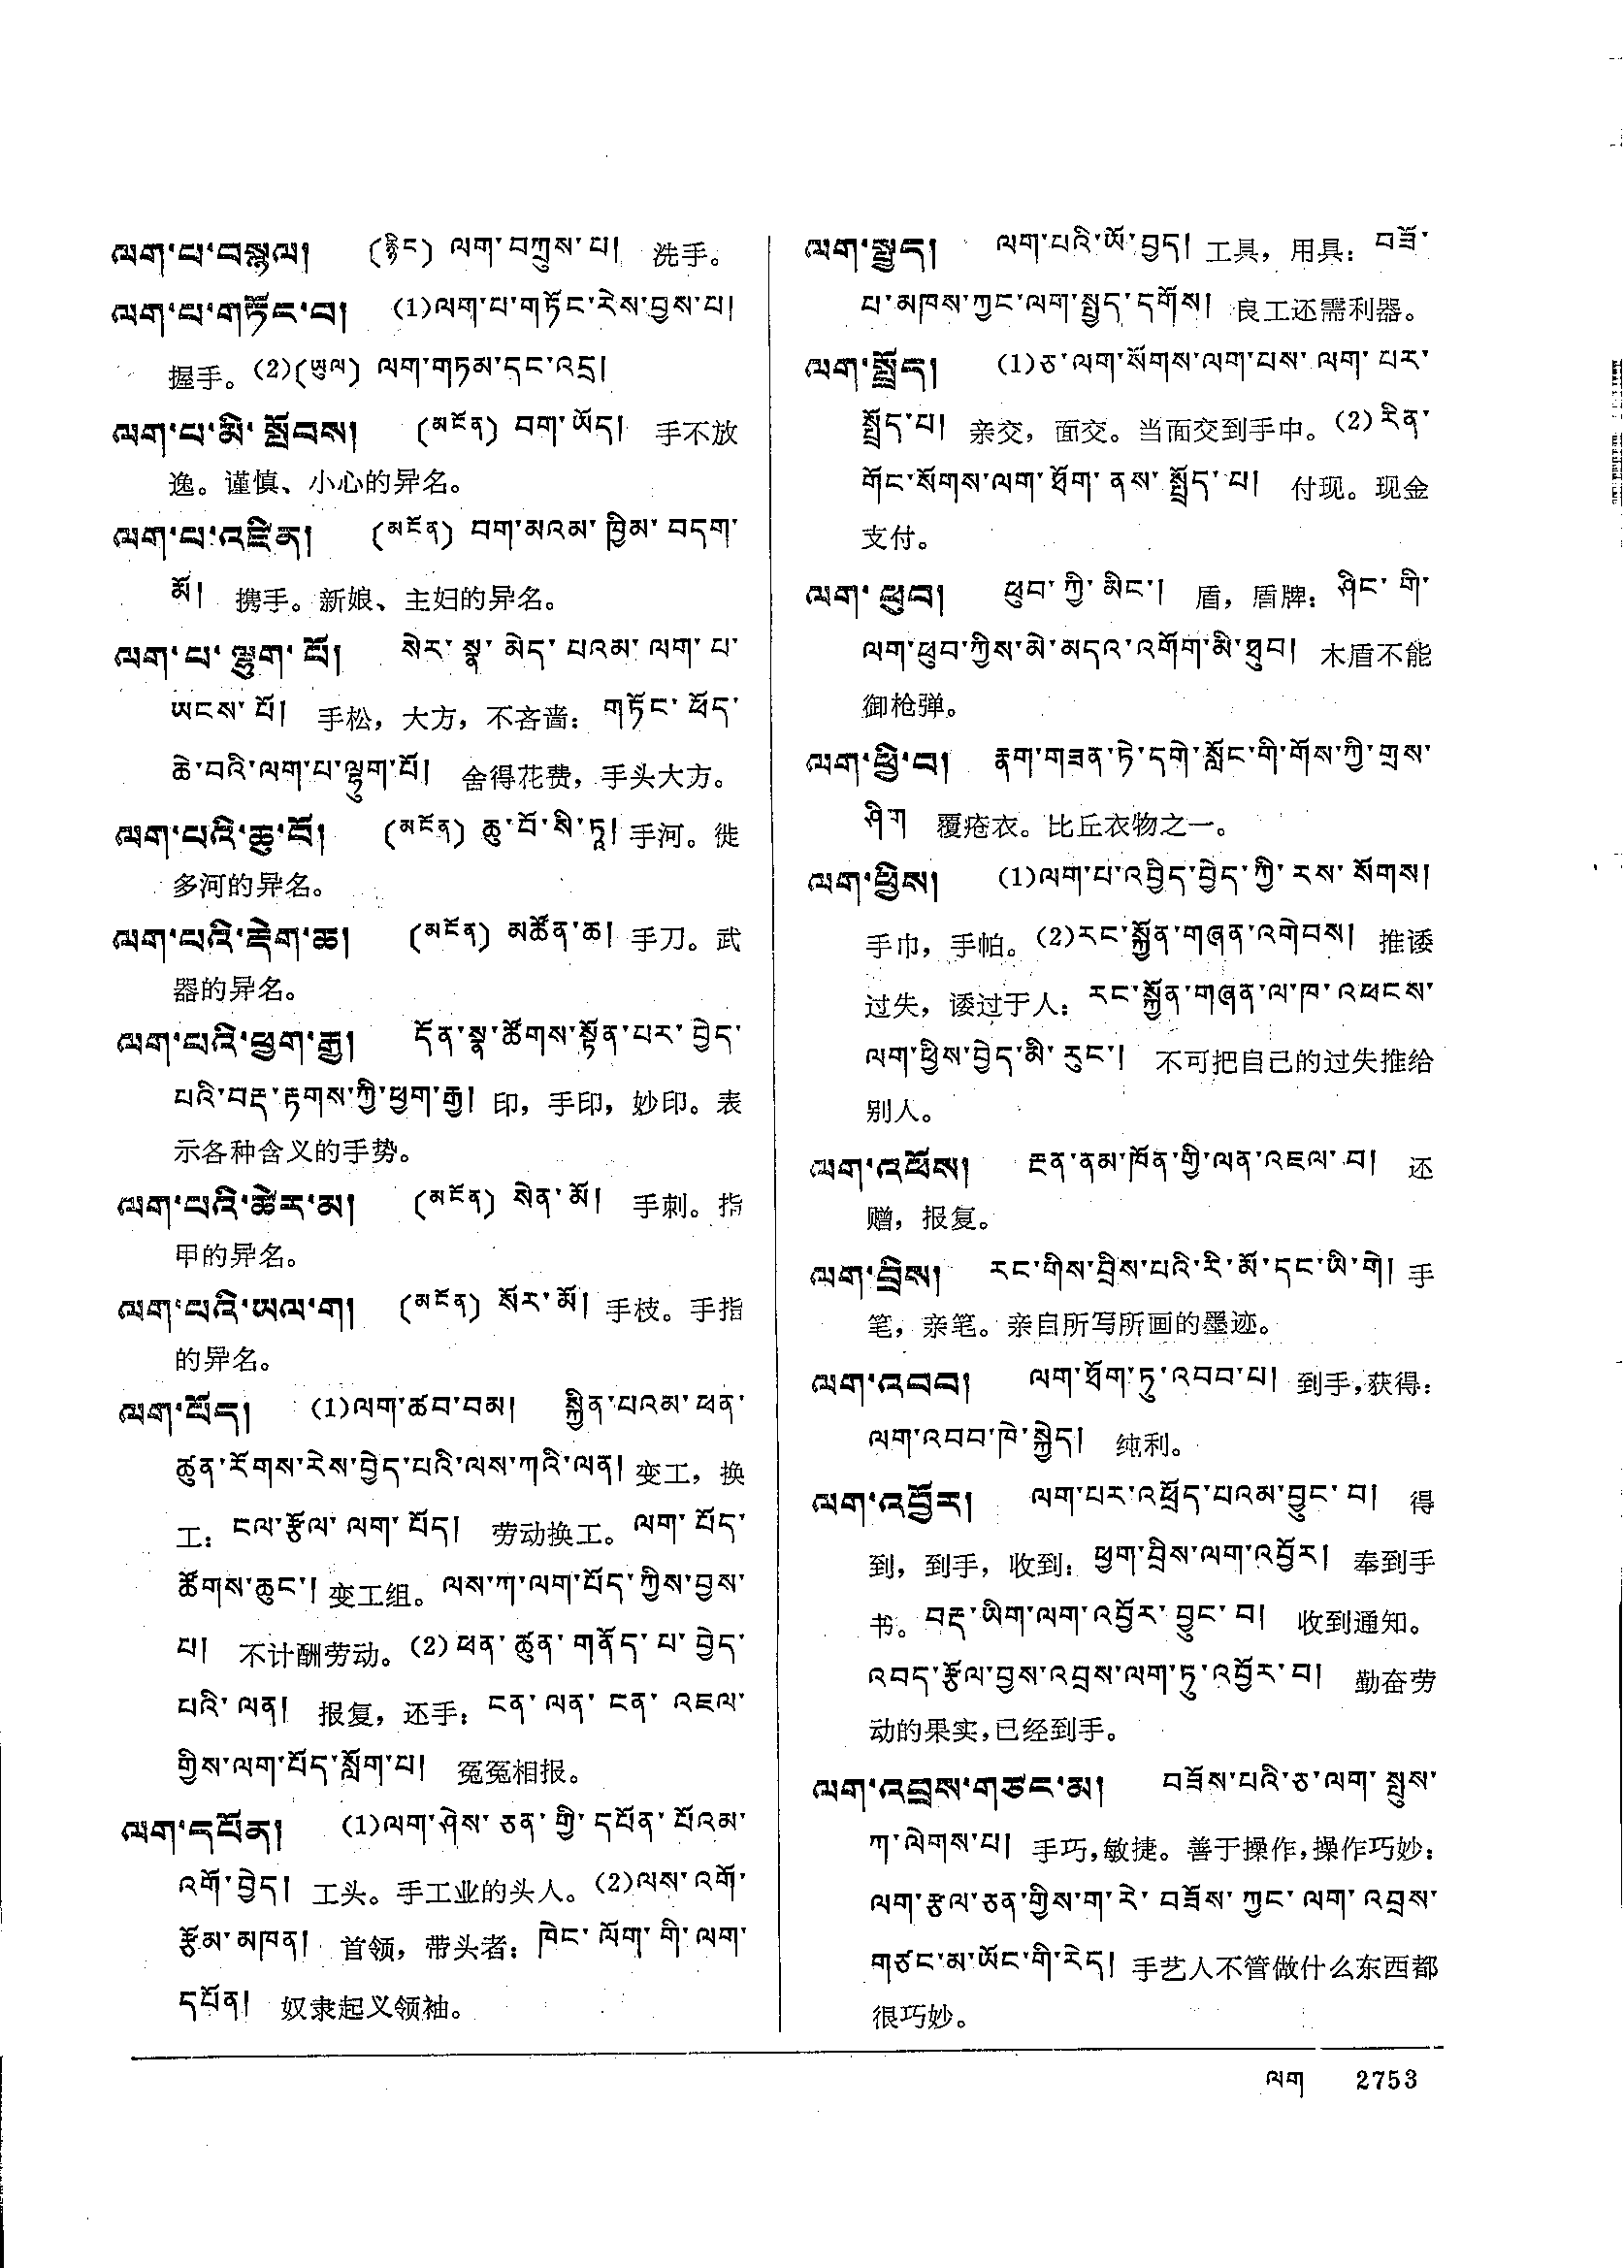 ལག་པ་བསྙལ། (རྙིང) ལག་བཀྲུས་པ། 洗手。
ལག་པ་གཏོང་བ། (1)ལག་པ་གཏོང་རེས་བྱས་པ།
握手。(2)(ཡུལ) ལག་གཏམ་དང་འདྲ།
ལག་པ་མི་སློབས། (མངོན) བག་ཡོད། 手不放
逸。谨慎、小心的异名。
ལག་པ་འཛིན། (མངོན) བག་མའམ་ཁྱིམ་བདག་
མོ། 携手。新娘、主妇的异名。
ལག་པ་ལྷུག་པོ། སེར་སྣ་མེད་པའམ་ལག་པ་
ཡངས་པོ། 手松，大方，不吝啬：གཏོང་ཕོད་
ཆེ་བའི་ལག་པ་ལྷུག་པོ། 舍得花费，手头大方。
ལག་པའི་ཆུ་བོ། (མངོན) ཆུ་བོ་སི་ཏཱ། 手河。徙
多河的异名。
ལག་པའི་རྡེག་ཆ། (མངོན) མཚོན་ཆ། 手刀。武
器的异名。
ལག་པའི་ཕྱག་རྒྱ། དོན་སྣ་ཚོགས་སྟོན་པར་བྱེད་
པའི་བརྡ་རྟགས་ཀྱི་ཕྱག་རྒྱ། 印，手印，妙印。表
示各种含义的手势。
ལག་པའི་ཚེར་མ། (མངོན) སེན་མོ། 手刺。指
甲的异名。
ལག་པའི་ཡལ་ག། (མངོན) སོར་མོ། 手枝。手指
的异名。
ལག་པོད། (1)ལག་ཚབ་བམ། སྐྱིན་པའམ་ཕན་
ཚུན་རོགས་རེས་བྱེད་པའི་ལས་ཀའི་ལན། 变工，换
工：ངལ་རྩོལ་ལག་པོད། 劳动换工。ལག་པོད་
ཚོགས་ཆུང་། 变工组。ལས་ཀ་ལག་པོད་ཀྱིས་བྱས་
པ། 不计酬劳动。(2)ཕན་ཚུན་གནོད་པ་བྱེད་
པའི་ལན། 报复，还手：ངན་ལན་ངན་འཇལ་
གྱིས་ལག་པོད་སློག་པ། 冤冤相报。
ལག་དཔོན། (1)ལག་ཤེས་ཅན་གྱི་དཔོན་པོའམ་
འགོ་བྱེད། 工头。手工业的头人。(2)ལས་འགོ་
རྩོམ་མཁན། 首领，带头者：ཁེང་ལོག་གི་ལག་
དཔོན། 奴隶起义领袖。
ལག་སྤྱད། ལག་པའི་ཡོ་བྱད། 工具，用具：བཟོ་
པ་མཁས་ཀྱང་ལག་སྤྱད་དགོས། 良工还需利器。
ལག་སྤྲོད། (1)ཅ་ལག་སོགས་ལག་པས་ལག་པར་
སྤྲོད་པ། 亲交，面交。当面交到手中。(2)རིན་
གོང་སོགས་ལག་ཐོག་ནས་སྤྲོད་པ། 付现。现金
支付。
ལག་ཕུབ། ཕུབ་ཀྱི་མིང་། 盾，盾牌：ཤིང་གི་
ལག་ཕུབ་ཀྱིས་མེ་མདའ་འགོག་མི་ཐུབ། 木盾不能
御枪弹。
ལག་ཕྱི་བ། རྣག་གཟན་ཏེ་དགེ་སློང་གི་གོས་ཀྱི་གྲས་
ཤིག 覆疮衣。比丘衣物之一。
ལག་ཕྱིས། (1)ལག་པ་འབྱིད་བྱེད་ཀྱི་རས་སོགས།
手巾，手帕。(2)རང་སྐྱོན་གཞན་འགེབས། 推诿
过失，诿过于人：རང་སྐྱོན་གཞན་ལ་ཁ་འཕངས་
ལག་ཕྱིས་བྱེད་མི་རུང་། 不可把自己的过失推给
别人。
ལག་འཕོས། རྔན་ནམ་ཁོན་གྱི་ལན་འཇལ་བ། 还
赠，报复。
ལག་བྲིས། རང་གིས་བྲིས་པའི་རི་མོ་དང་ཡི་གེ། 手
笔，亲笔。亲自所写所画的墨迹。
ལག་འབབ། ལག་ཐོག་ཏུ་འབབ་པ། 到手,获得：
ལག་འབབ་ཁེ་སྐྱེད། 纯利。
ལག་འབྱོར། ལག་པར་འཕྲོད་པའམ་བྱུང་བ། 得
到，到手，收到：ཕྱག་བྲིས་ལག་འབྱོར། 奉到手
书。བརྡ་ཡིག་ལག་འབྱོར་བྱུང་བ། 收到通知。
འབད་རྩོལ་བྱས་འབྲས་ལག་ཏུ་འབྱོར་བ། 勤奋劳
动的果实,已经到手。
ལག་འབྲས་གཙང་མ། བཟོས་པའི་ཅ་ལག་སྤུས་
ཀ་ལེགས་པ། 手巧,敏捷。善于操作,操作巧妙：
ལག་རྩལ་ཅན་གྱིས་ག་རེ་བཟོས་ཀྱང་ལག་འབྲས་
གཙང་མ་ཡོང་གི་རེད། 手艺人不管做什么东西都
很巧妙。
ལག 2753